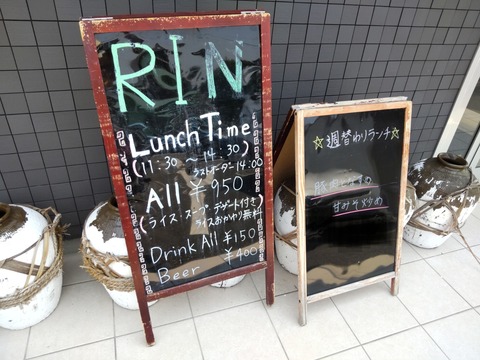 RIN
Lunch Time
(11:30～14:30)
ラストオーダー14:00
All ¥950
(ライス・スープ・デザート付き)
ライスおかわり無料
Drink All ¥150
Beer ¥400
☆週替わりランチ☆
豚肉
甘みそ炒め